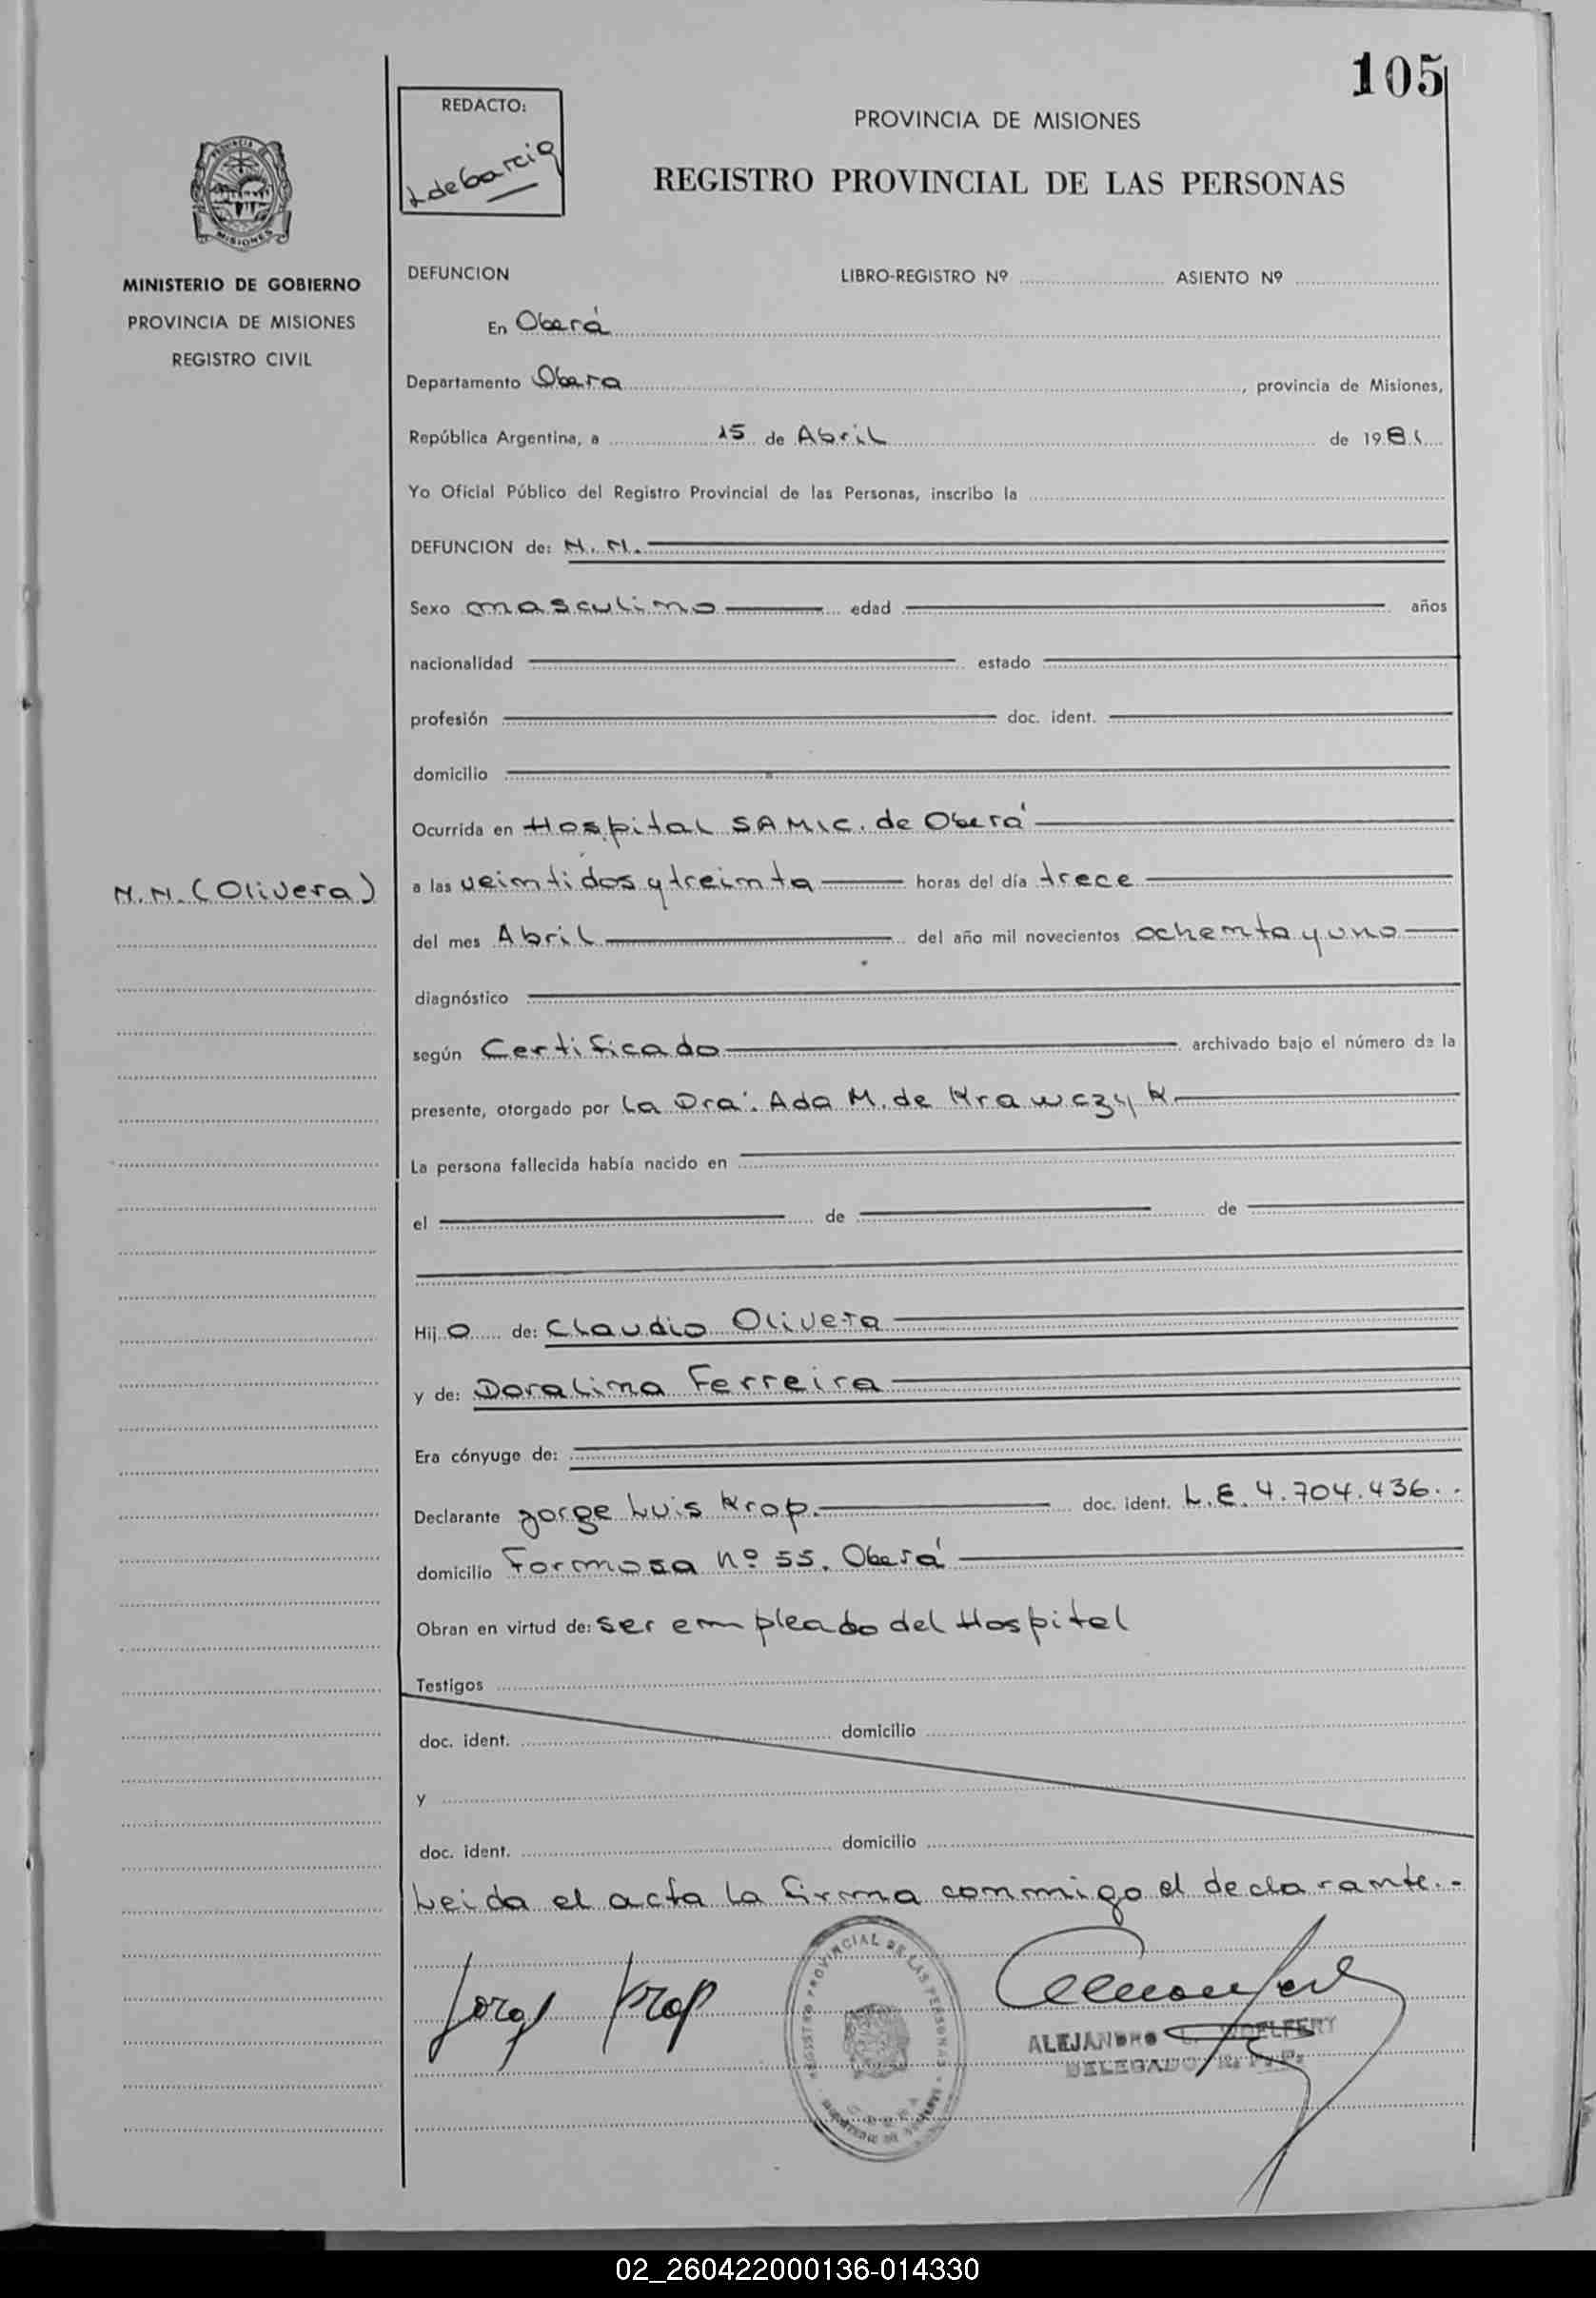 105
REDACTO:
PROVINCIA DE MISIONES
REGISTRO PROVINCIAL DE LAS PERSONAS
MISIONES
MINISTERIO DE GOBIERNO
PROVINCIA DE MISIONES
REGISTRO CIVIL
DEFUNCION LIBRO-REGISTRO Nº ASIENTO Nº
En Oberá
Departamento Obera, provincia de Misiones,
República Argentina, a 15 de Abril de 1981
Yo Oficial Público del Registro Provincial de las Personas, inscribo la
DEFUNCION de: N. N.
Sexo masculino edad años
nacionalidad estado
profesión doc. ident.
domicilio
Ocurrida en Hospital SAMIC. de Oberá
N.N. (Olivera)
a las veintidos y treinta horas del día trece
del mes Abril del año mil novecientos ochenta y uno
diagnóstico
según Certificado archivado bajo el número de la
presente, otorgado por La Dra. Ada M. de Krawczyk
La persona fallecida había nacido en
el de de
Hijo de: Claudio Olivera
y de: Doralina Ferreira
Era cónyuge de:
Declarante Jorge Luis Krop. doc. ident. L.E. 4.704.436.
domicilio Formosa nº 55. Oberá
Obran en virtud de: ser empleado del Hospital
Testigos
doc. ident. domicilio
y
doc. ident. domicilio
Leida el acta la firma conmigo el declarante.-
Jorge Krop
REGISTRO PROVINCIAL DE LAS PERSONAS
ALEJANDRO
DELEGADO R. P. P.
02_260422000136-014330